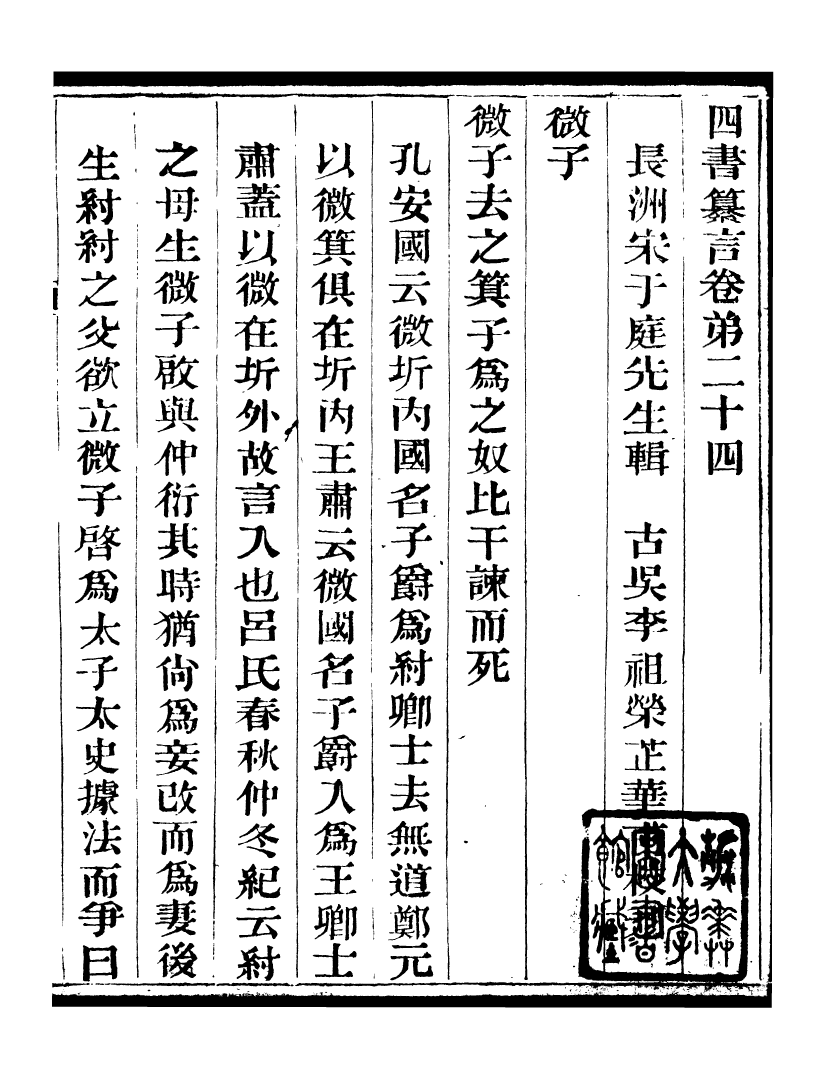 四書纂言卷弟二十四
長洲宋于庭先生輯　古吳李祖榮芷華
微子
微子去之箕子爲之奴比干諫而死
孔安國云微圻内國名子爵爲紂卿士去無道鄭元
以微箕俱在圻内王肅云微國名子爵入爲王卿士
肅蓋以微在圻外故言入也呂氏春秋仲冬紀云紂
之母生微子啟與仲衍其時猶尙爲妾改而爲妻後
生紂紂之父欲立微子啓爲太子太史據法而爭曰